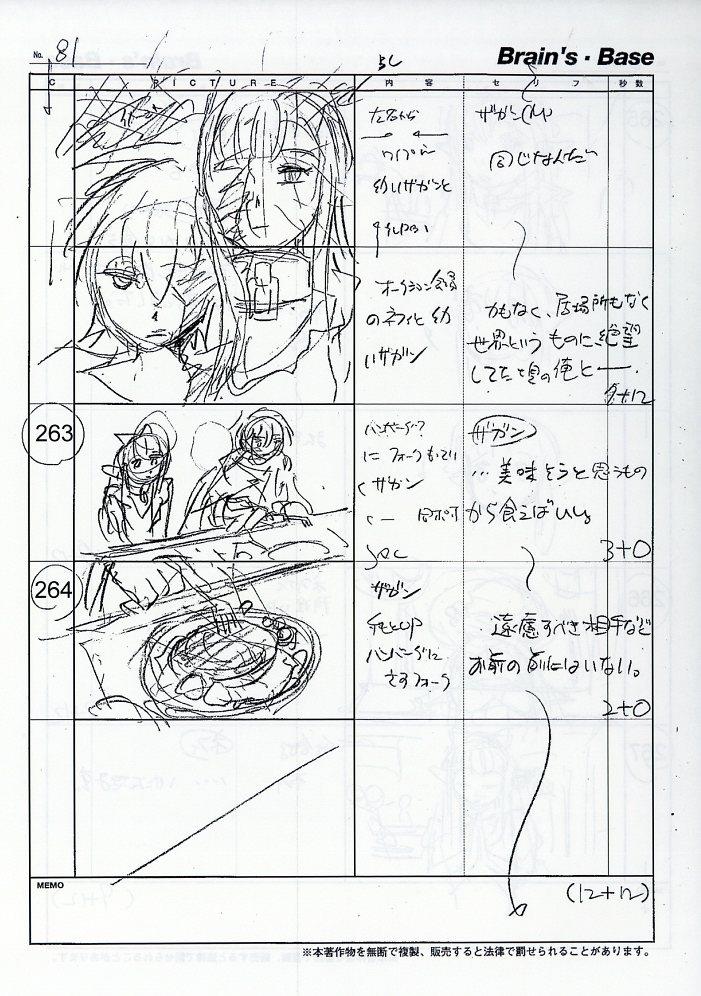 No. 81
Brain's・Base
C
PICTURE
内容
セリフ
秒数
ザガン(M)
同じなんだ
ワイプで
幼いザガンと
オークション会場
のネフィと幼
いザガン
かもなく、居場所もなく
世界というものに絶望
してた頃の俺と——.
9+12
263
ハンバーグ？
にフォークもってい
くザガン
ザガン
…美味そうと思うもの
から食えばいい。
3+0
264
ザガン
手元UP
ハンバーグに
さすフォーク
遠慮すべき相手など
お前の前にはいない。
2+0
MEMO
(12+12)
※本著作物を無断で複製、販売すると法律で罰せられることがあります。